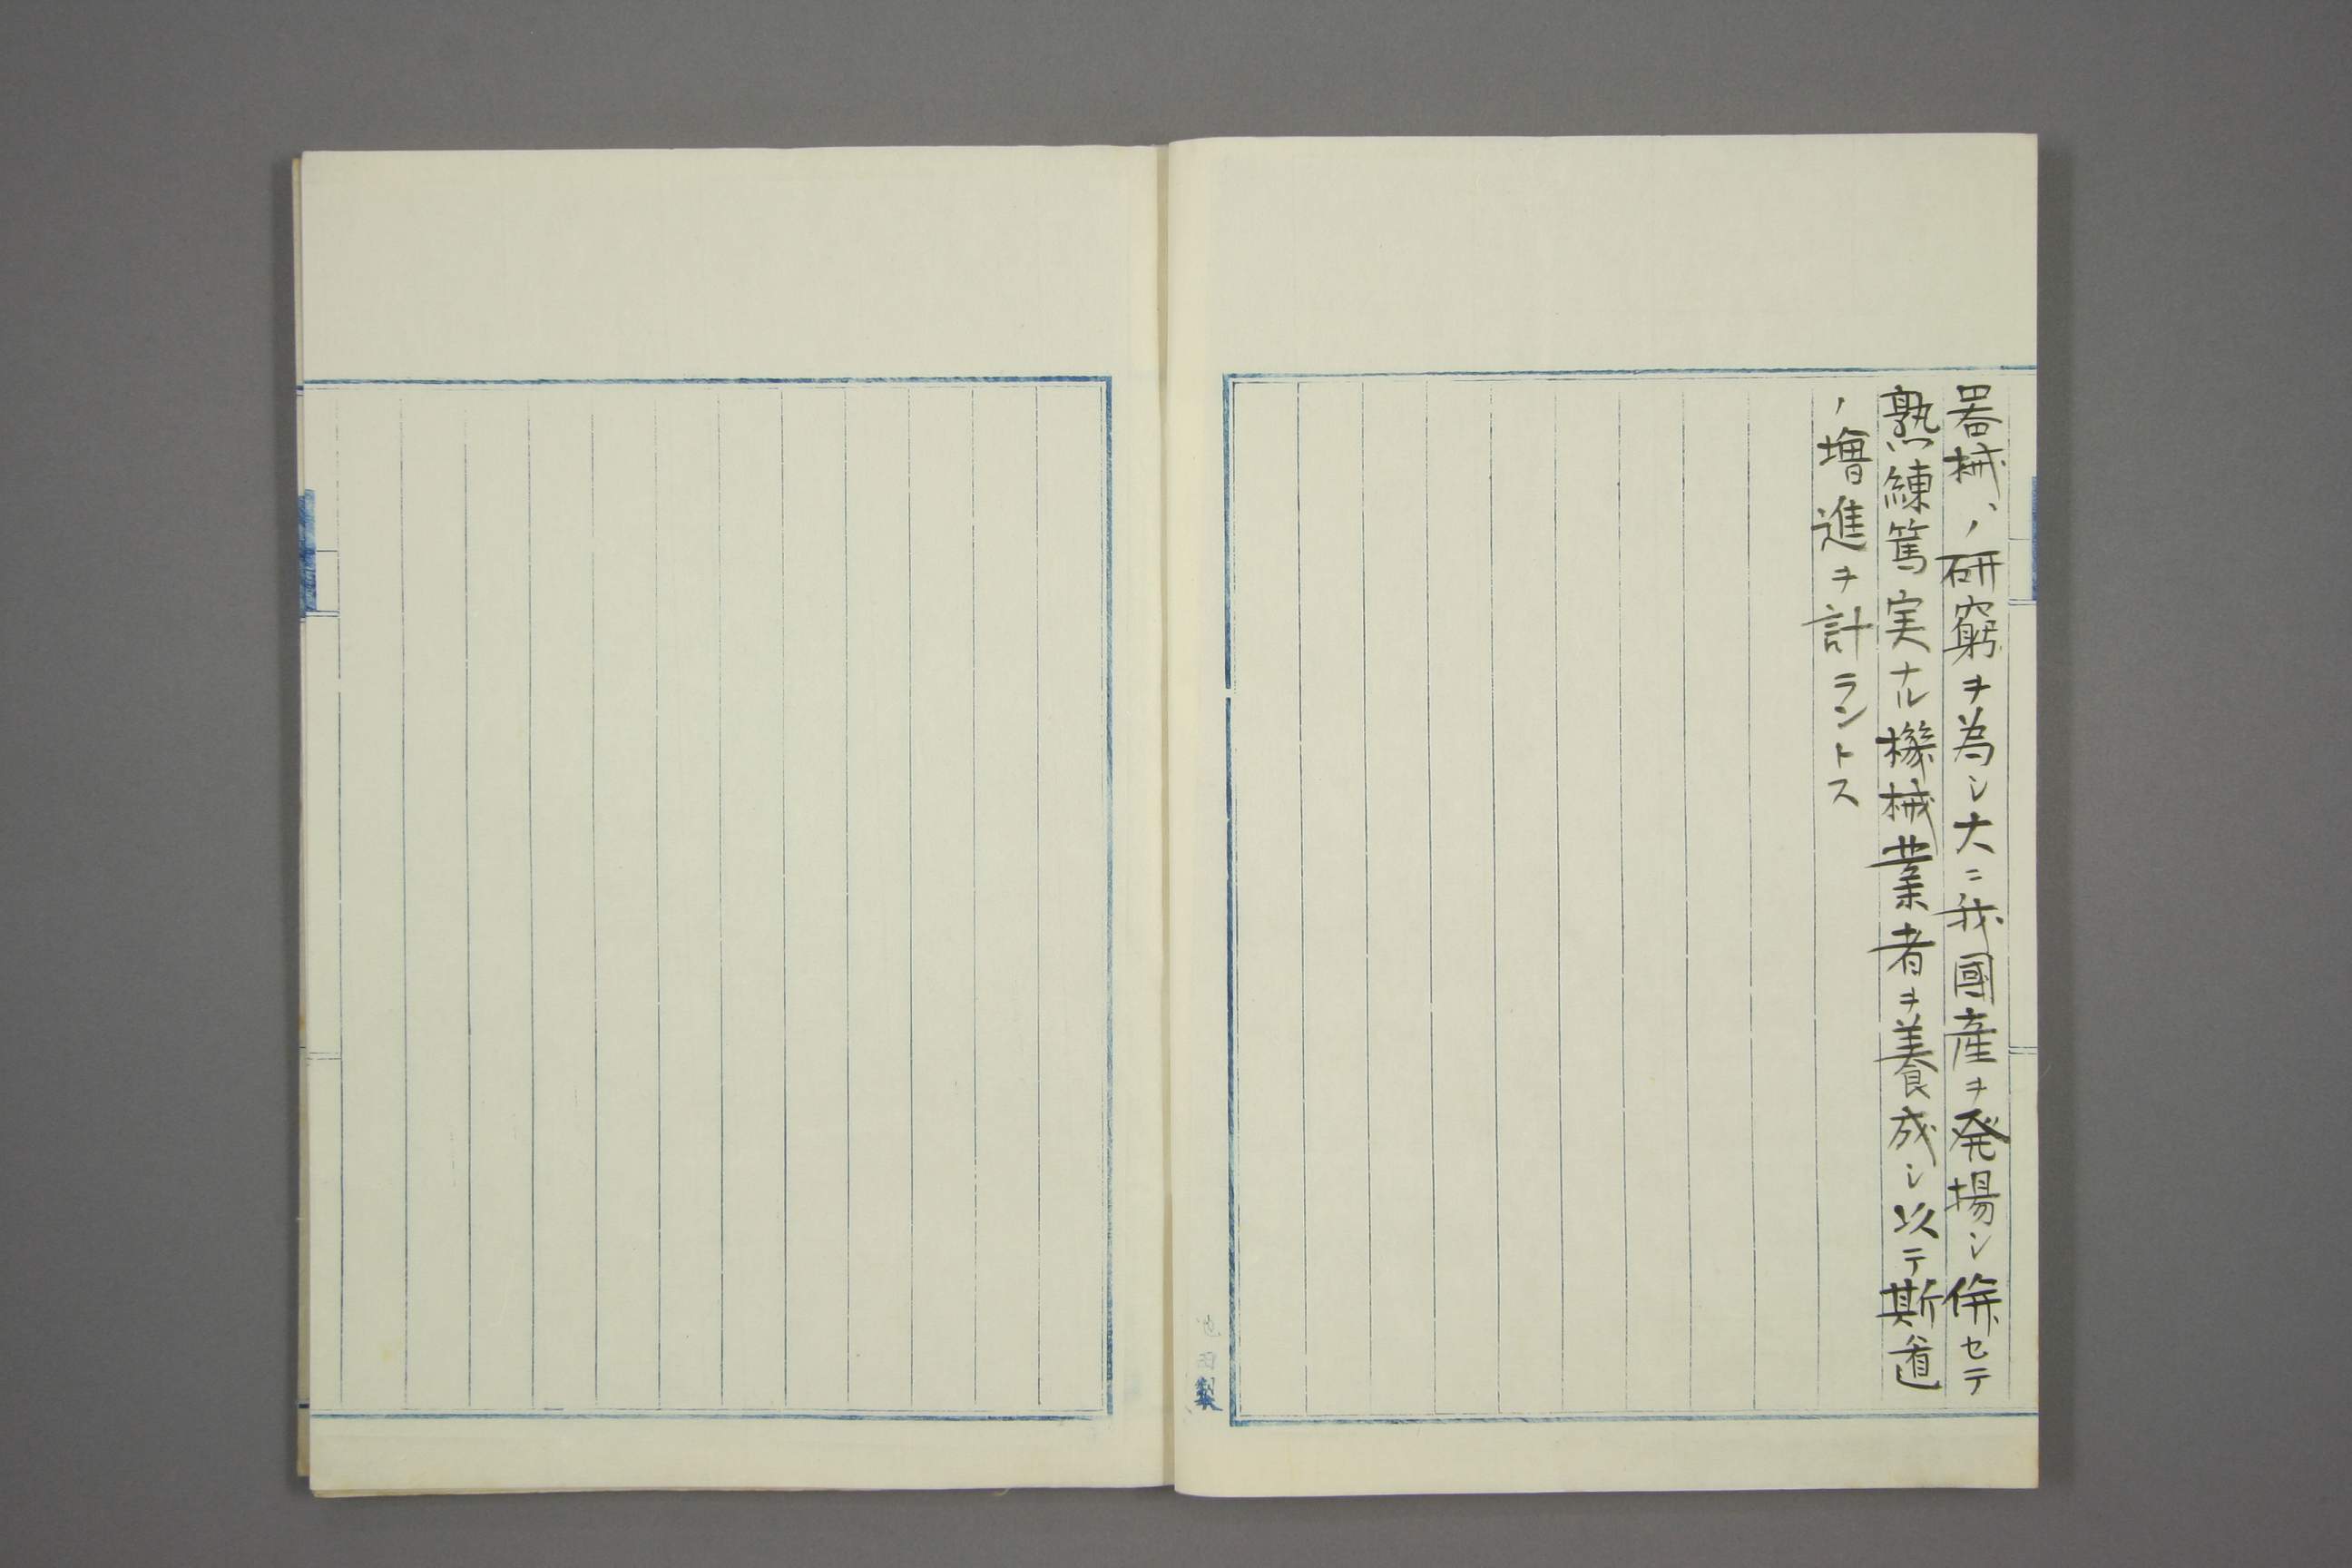 器械ノ研窮ヲ為シ大ニ我國産ヲ発揚シ併セテ
熟練篤実ナル機械業者ヲ養成シ以テ斯道
ノ増進ヲ計ラントス
製